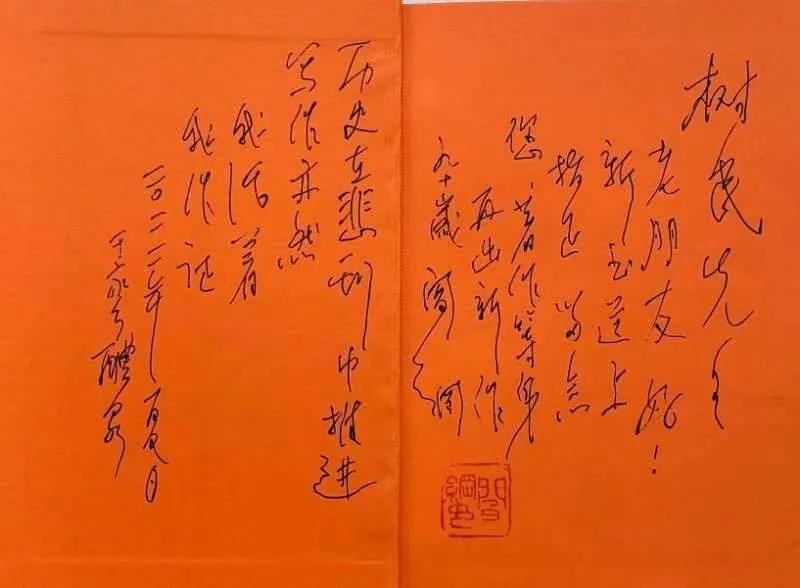 树民先生
老朋友好！
新书送上
指正留念
您著作等身
再出新作
九十岁 阎纲
历史在悲剧中推进
写作亦然
我活着
我作证
二〇二二年夏日
于家乡醴泉